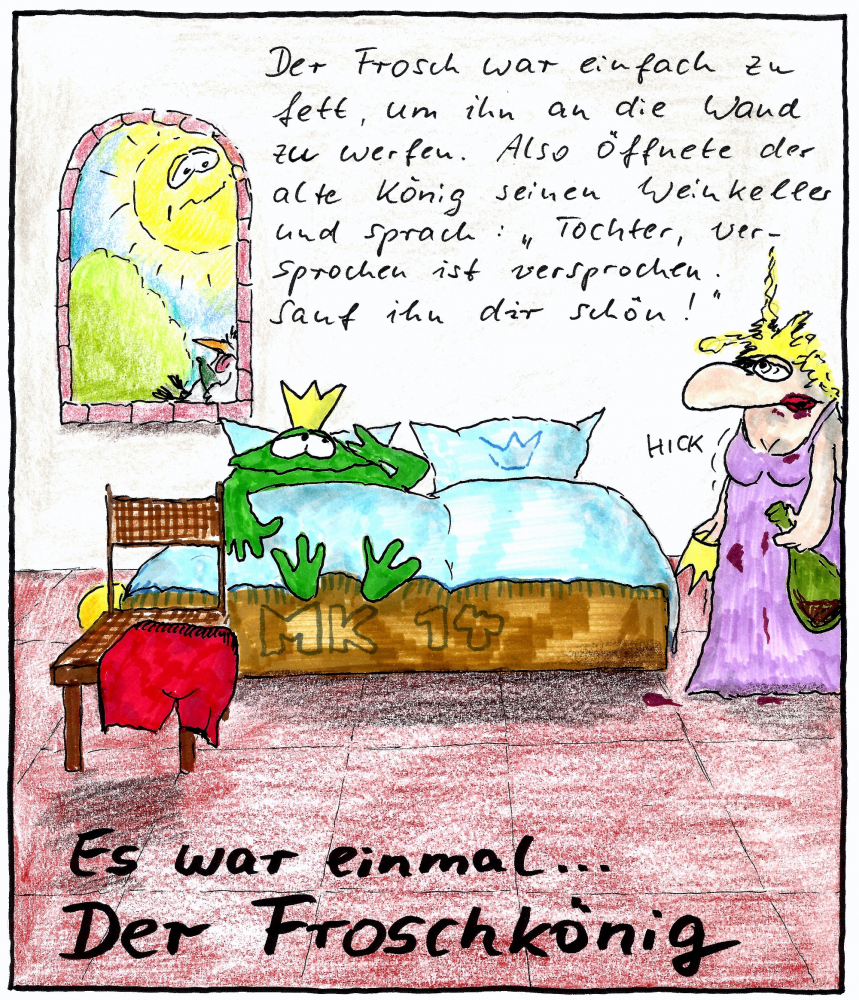 Der Frosch war einfach zu
fett, um ihn an die Wand
zu werfen. Also öffnete der
alte König seinen Weinkeller
und sprach: „Tochter, ver-
sprochen ist versprochen.
Sauf ihn dir schön!"
HICK
MK 14
Es war einmal...
Der Froschkönig